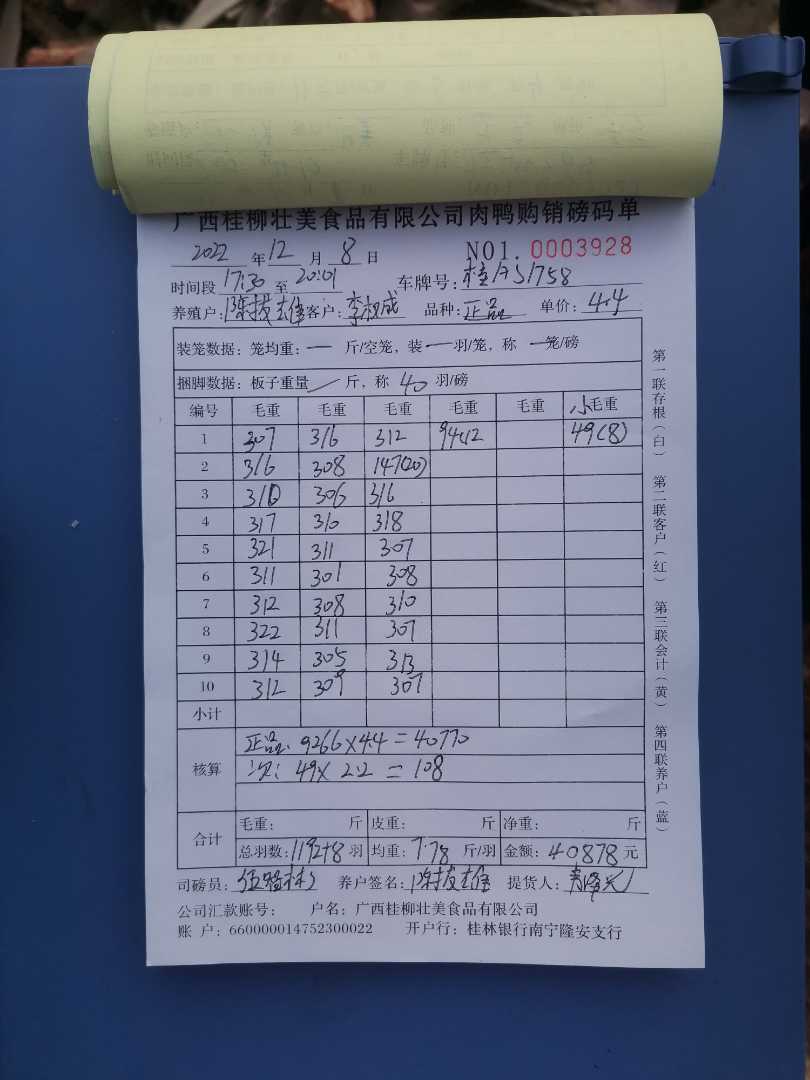 广西桂柳壮美食品有限公司肉鸭购销磅码单
2022 年 12 月 8 日 NO1. 0003928
时间段 17:30 至 20:01 车牌号: 桂 51758
养殖户: 陈 雄 客户: 李 成 品种: 正品 单价: 4.4
装笼数据: 笼均重: — 斤/空笼, 装 — 羽/笼, 称 — 笼/磅
捆脚数据: 板子重量 / 斤, 称 40 羽/磅
编号 毛重 毛重 毛重 毛重 毛重 小毛重
1 307 316 312 94(12 49(8)
2 316 308 147(20)
3 310 306 316
4 317 310 318
5 321 311 307
6 311 301 308
7 312 308 310
8 322 311 307
9 314 305 313
10 312 309 307
小计
核算 正品: 9266×4.4=40770
次: 49×2.2=108
合计 毛重: 斤 皮重: 斤 净重: 斤
总羽数: 1192+8 羽 均重: 7.78 斤/羽 金额: 40878 元
司磅员: 养户签名: 陈 雄 提货人:
公司汇款账号: 户名: 广西桂柳壮美食品有限公司
账 户: 660000014752300022 开户行: 桂林银行南宁隆安支行
第一联存根(白) 第二联客户(红) 第三联会计(黄) 第四联养户(蓝)